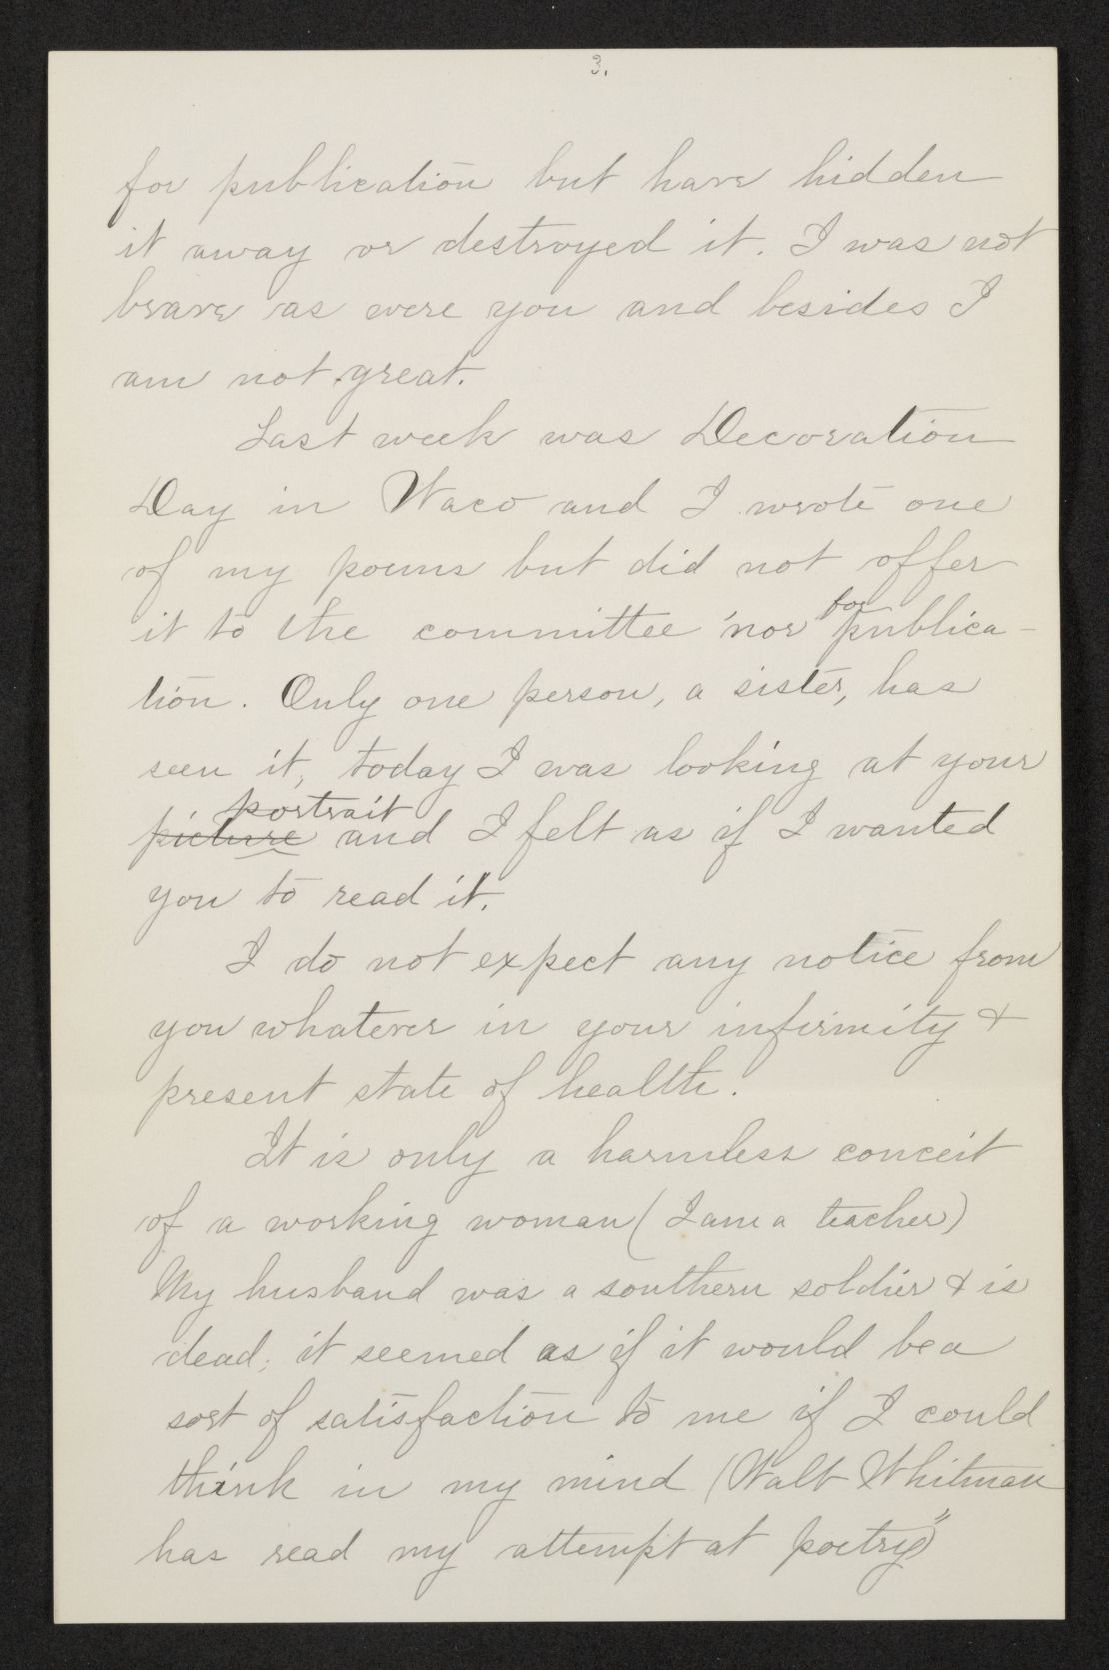 3.
for publication but have hidden
it away or destroyed it. I was not
brave as were you and besides I
am not great.
Last week was Decoration
Day in Waco and I wrote one
of my poems but did not offer
it to the committee nor for publica-
tion. Only one person, a sister, has
seen it, today I was looking at your
picture portrait and I felt as if I wanted
you to read it.
I do not expect any notice from
you whatever in your infirmity &
present state of health.
It is only a harmless conceit
of a working woman (I am a teacher)
My husband was a southern soldier & is
dead; it seemed as if it would be a
sort of satisfaction to me if I could
think in my mind (Walt Whitman
has read my attempt at poetry")